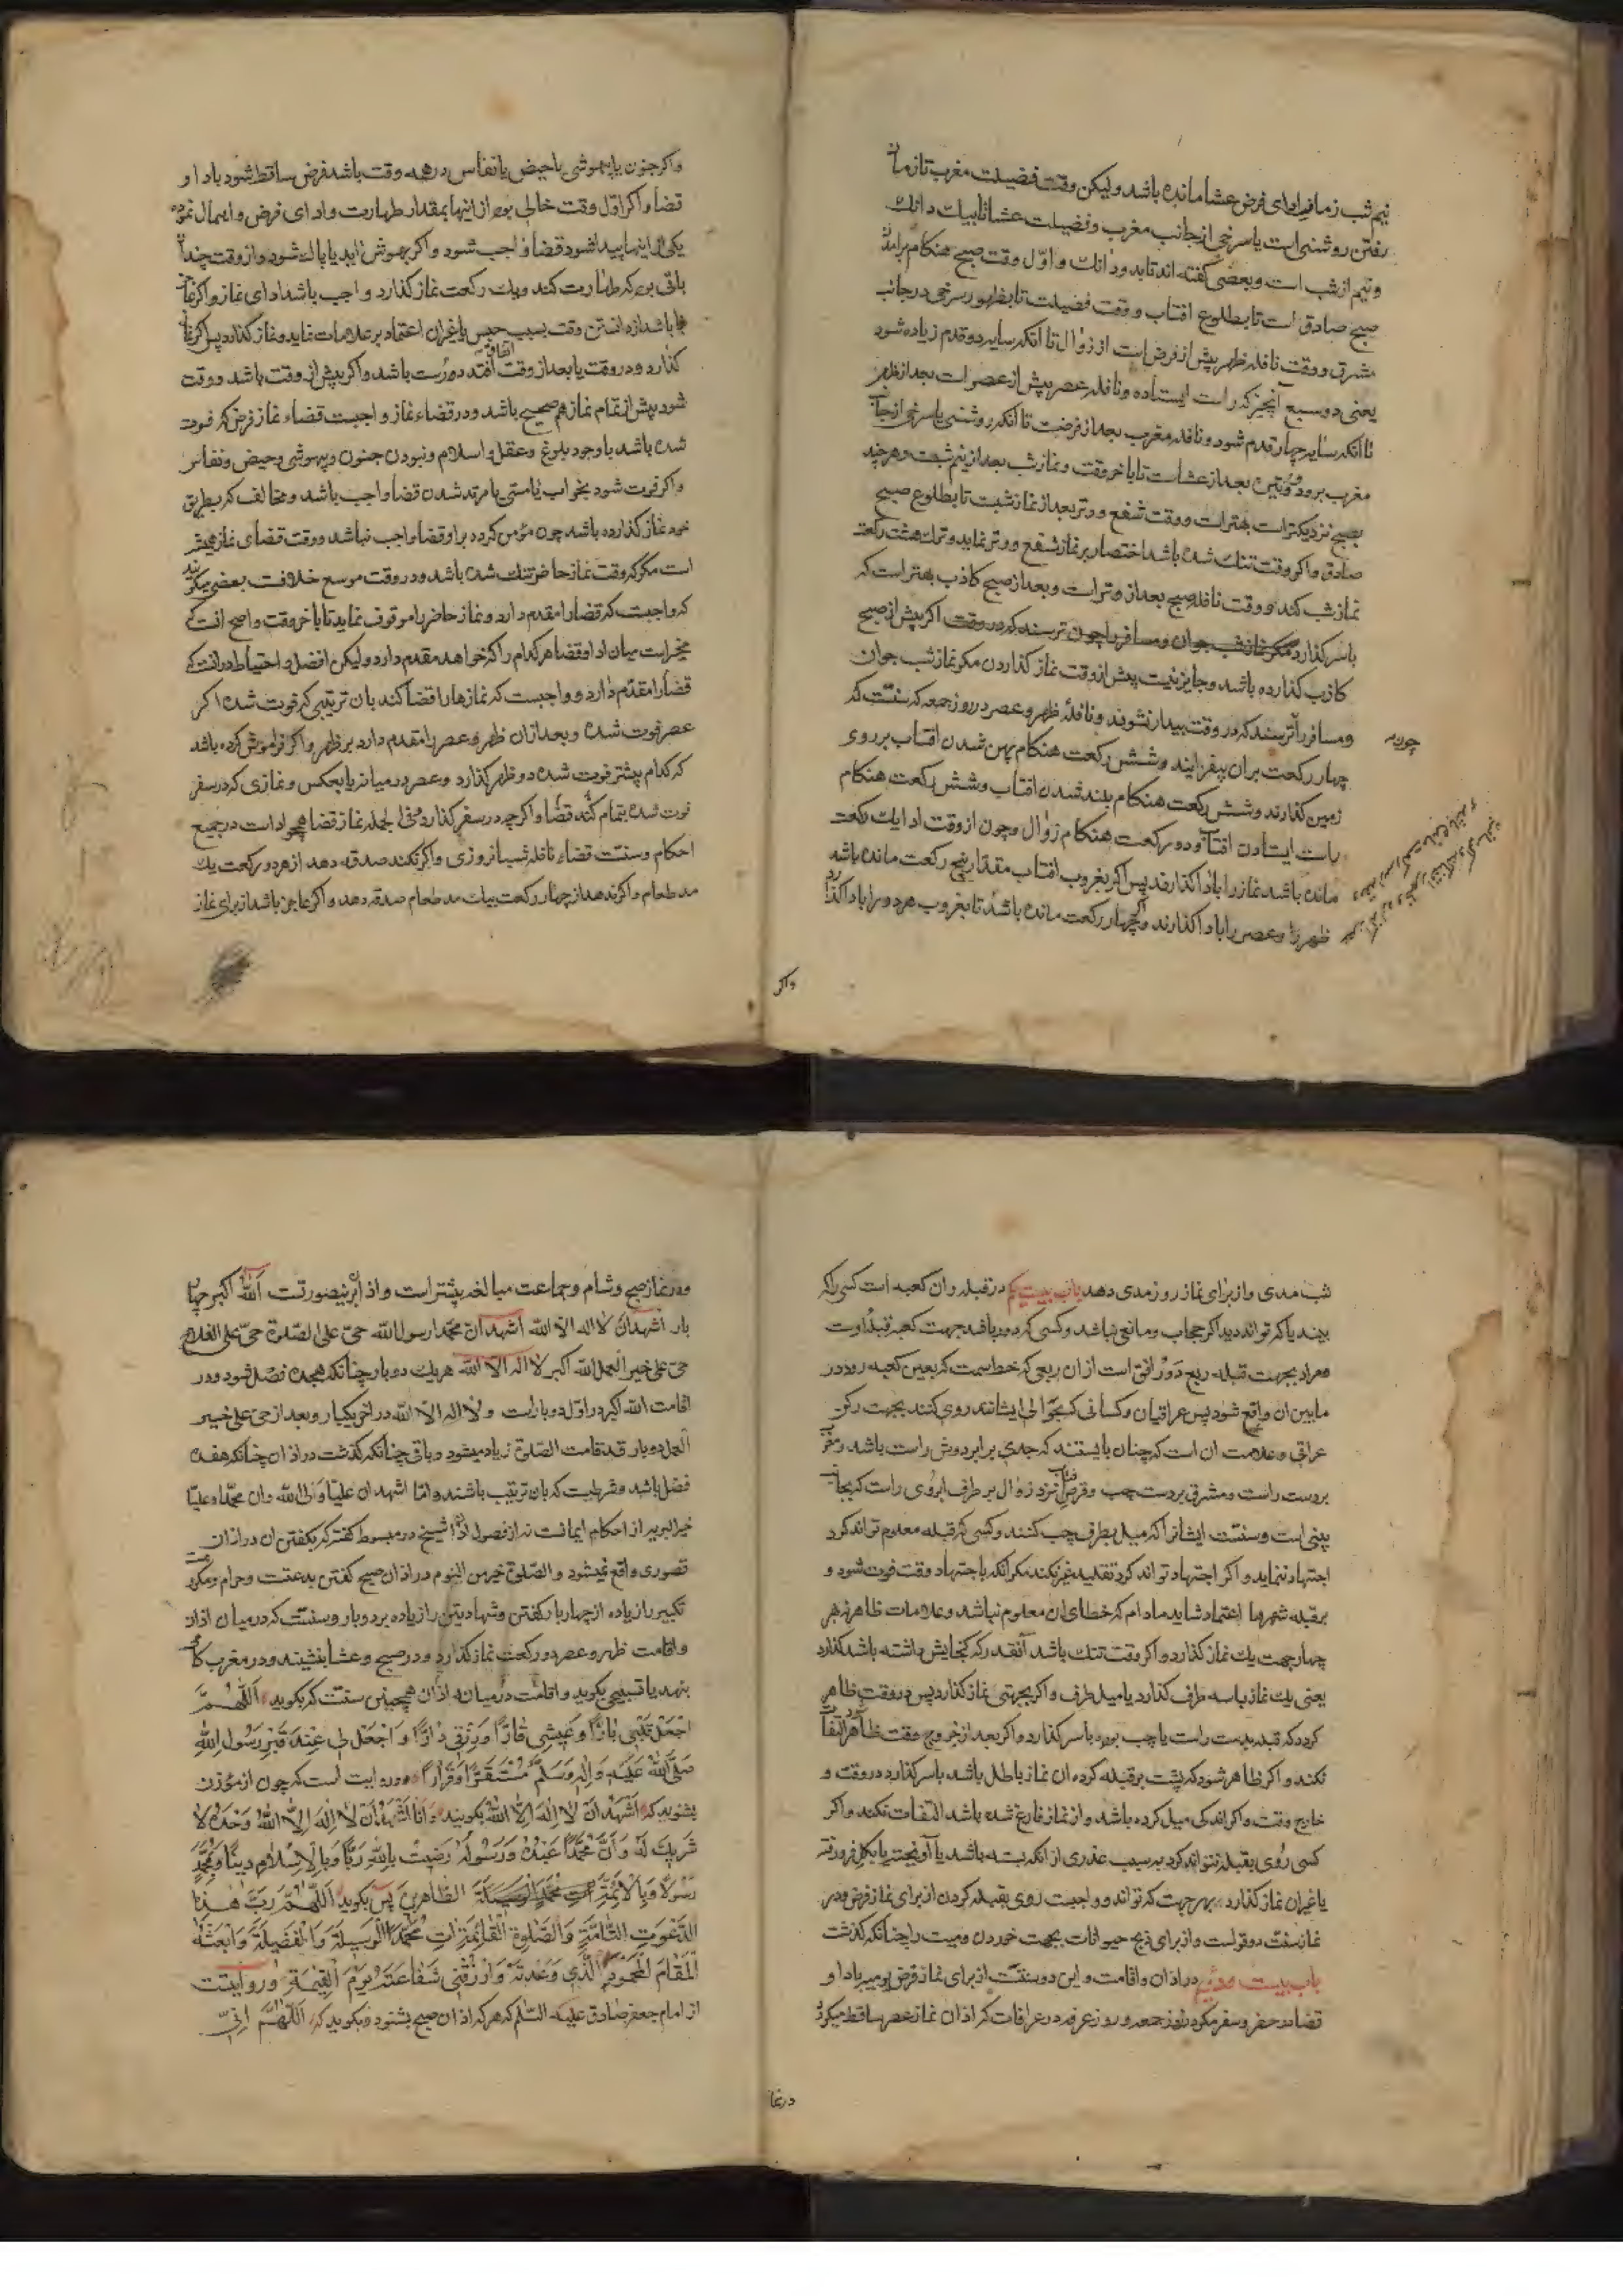 نیم شب زمان ادای فرض عشا مانده باشد ولیکن وقت فضیلت مغرب تا زمان
رفتن روشنی است یا سرخی از جانب مغرب وفضیلت عشا تا بیك دانك
ونیم از شب است وبعضی کفته اند تا بدو دانك واوّل وقت صبح هنکام برامدن
صبح صادق است تا بطلوع افتاب ووقت فضیلت تا بظهور سرخی در جانب
مشرق ووقت نافله ظهر پیش از فرض است از زوال تا انکه سایه دو قدم زیاده شود
یعنی دو سبع آنچیز که راست ایستاده ونافله عصر پیش از عصر است بعد از ظهر
تا انکه سایه چهار قدم شود ونافله مغرب بعد از فرضست تا انکه روشنی یا سرخی از جانب
مغرب برود ووتیره بعد از عشاست تا باخر وقت ونماز شب بعد از نیم شبست وهرچند
بصبح نزدیکتر است بهتر است ووقت شفع ووتر بعد از نماز شبست تا بطلوع صبح
صادق واکر وقت تنك شده باشد اختصار بر نماز شفع ووتر نماید وترك هشت رکعت
نماز شب کند ووقت نافله صبح بعد از وتر است وبعد از صبح کاذب بهتر است که
باسر کذارد مکر نماز شب جوان ومسافر را چون ترسند که در وقت اکر پیش از صبح
کاذب کذارده باشد وجایز نیست پیش از وقت نماز کذاردن مکر نماز شب جوان
ومسافر را ترسند که در وقت بیدار نشوند ونافلۀ ظهر وعصر در روز جمعه که سنّتست که
چون
چهار رکعت بران بیفزایند وشش رکعت هنکام پهن شدن افتاب بر روی
زمین کذارند وشش رکعت هنکام بلند شدن افتاب وشش رکعت هنکام
راست ایستادن افتاب ودو رکعت هنکام زوال وچون از وقت ادا یك رکعت
مانده باشد نماز را بادا کذارند پس اکر بغروب افتاب مقدار پنج رکعت مانده باشد
ظهر را وعصر را بادا کذارند واکر چهار رکعت مانده باشد تا بغروب هر دو را بادا کذارد
واکر
واکر جنون یا بیهوشی یا حیض یا نفاس در همه وقت باشد فرض ساقط شود بادا و
قضا واکر اوّل وقت خالی بود از اینها بمقدار طهارت وادای فرض واهمال نمود
یکی از اینها پیدا شود قضا واجب شود واکر بهوش اید یا پاك شود واز وقت چندان
باقی بود که طهارت کند ویك رکعت نماز کذارد واجب باشد ادای نماز واکر عاجز
باشد از دانستن وقت بسبب حبس یا غیران اعتماد بر علامات نماید ونماز کذارد پس اکر نماز
کذارد ودر وقت یا بعد از وقت اتفاق افتد درست باشد واکر پیش از وقت باشد ووقت
شود پیش از تمام نماز هم صحیح باشد ودر قضاء نماز واجبست قضاء نماز فرض که فوت
شده باشد با وجود بلوغ وعقل واسلام ونبودن جنون وبیهوشی وحیض ونفاس
واکر فوت شود بخواب یا مستی یا مرتد شدن قضا واجب باشد ومخالف که بطریق
خود نماز کذارده باشد چون مؤمن کردد براو قضا واجب نباشد ووقت قضای نماز همیشه
است مکر که وقت نماز حاضر تنك شده باشد ودر وقت موسع خلافست بعضی میکویند
که واجبست که قضا را مقدم دارد ونماز حاضر را موقوف نماید تا باخر وقت واصح انست که
مخیر است میان ادا وقضا هر کدام را که خواهد مقدم دارد ولیکن افضل واحتیاط در انست که
قضا را مقدّم دارد وواجبست که نمازها را قضا کند بان ترتیبی که فوت شده اکر
عصر فوت شده وبعد ازان ظهر وعصر را مقدم دارد بر ظهر واکر فراموش کرده باشد
که کدام پیشتر فوت شده دو ظهر کذارد وعصر در میانه یا بعکس ونمازی که در سفر
فوت شده بتمام کند قضا واکر چه در سفر کذارد وفی الجمله نماز قضا همچو اداست در جمیع
احکام وسنّت قضاء نافله شبانروزی واکر نکند صدقه دهد از هر دو رکعت یك
مد طعام واکر ندهد از چهار رکعت بیك مد طعام صدقه دهد واکر عاجز باشد از برای نماز
شب مدی واز برای نماز روز مدی دهد باب بیست یکم در قبله وان کعبه است کسی را که
بیند یا که تواند دید اکر حجاب ومانعی نباشد وکسی که دور باشد جهت کعبه قبلۀ اوست
ومراد بجهت قبله ربع دَوْر افق است از ان ربعی که خط سمت که بعین کعبه رود در
مابین ان واقع شود پس عراقیان وکسانی که بحوالی ایشانند روی کنند بجهت رکن
عراقی وعلامت ان است که چنان بایستند که جدی برابر دوش راست باشد ومغرب
بر دست راست ومشرق بر دست چپ وقرص افتاب نزد زوال بر طرف ابروی راست که بجانب
بینی است وسنّتست ایشانرا که میل بطرف چپ کنند وکسی که قبله معلوم تواند کرد
اجتهاد ننماید واکر اجتهاد تواند کرد تقلید غیر نکند مکر انکه باجتهاد وقت فوت شود و
بر قبله شهرها اعتماد شاید مادام که خطای ان معلوم نباشد وعلامات ظاهر نه بهر
چهار جهت یك نماز کذارد واکر وقت تنك باشد آنقدر که کنجایش داشته باشد کذارد
یعنی یك نماز یا سه طرف کذارد یا میل طرف واکر بجهتی نماز کذارد پس در وقت ظاهر
کردد که قبله بدست راست یا چپ بوده باسر کذارد واکر بعد از خروج وقت ظاهر کردد التفات
نکند واکر ظاهر شود که پشت بر قبله کرده ان نماز باطل باشد باسر کذارد در وقت و
خارج وقت واکر اندکی میل کرده باشد واز نماز فارغ شده باشد التفات نکند واکر
کسی رُوی بقبله نتواند کرد بسبب عذری از انکه بسته باشد یا آویخته یا بکل فرو رفته
یا غیران نماز کذارد بهر جهت که تواند وواجبست روی بقبله کردن از برای نماز فرض ودر
نماز سنّت دو قولست واز برای ذبح حیوانات بجهت خوردن ومیت را چنانکه کذشت
باب بیست دوئیم در اذان واقامت واین دو سنّتست از برای نماز فرض یومیه بادا و
قضا در حضر وسفر مکر در روز جمعه وروز عرفه در عرفات که اذان نماز عصر ساقط میکردد
در نما
ودر نماز صبح وشام وجماعت مبالغه بیشتر است واذان برینصورتست اَللّٰهُ اکبر چهار
بار اشهد ان لا اله الا اللّٰه اشهد ان محمّدا رسول اللّٰه حیّ علی الصّلوة حیّ علی الفلاح
حیّ علی خیر العمل اللّٰه اکبر لا اله الا اللّٰه هریك دو بار چنانکه هجده فصل شود ودر
اقامت اللّٰه اکبر در اوّل دو بار است ولا اله الا اللّٰه در اخر یکبار وبعد از حیّ علی خیر
العمل دو بار قد قامت الصّلوة زیاد میشود وباقی چنانکه کذشت در اذان چنانکه هفده
فصل باشد وشرطست که بان ترتیب باشند وامّا اشهد ان علیّا ولیّ اللّٰه وان محمّدا وعلیّا
خیر البریه از احکام ایمانست نه از فصول اذان شیخ در مبسوط کفته که بکفتن ان در اذان
قصوری واقع نمیشود والصّلوة خیر من النوم در اذان صبح کفتن بدعتست وحرام ومکروهست
تکبیر را زیاده از چهار بار کفتن وشهادتین را زیاده بر دو بار وسنّتست که در میان اذان
واقامت ظهر وعصر دو رکعت نماز کذارد ودر صبح وعشا بنشیند ودر مغرب کامی
بنهد یا تسبیحی بکوید واقامت در میانۀ اذان همچنین سنّتست که بکوید اَللّٰهُمَّ
اجْعَلْ قَلْبِی بَارًّا وَعَیْشِی قَارًّا وَرِزْقِی دَارًّا وَاجْعَلْ لِی عِنْدَ قَبْرِ رَسُولِ اللّٰهِ
صَلَّی اللّٰهُ عَلَیْهِ وَاٰلِهِ وَسَلَّمَ مُسْتَقَرًّا وَقَرَارًا ودر روایت است که چون از مؤذن
بشنوید که اَشْهَدُ اَنْ لَا اِلٰهَ اِلَّا اللّٰهُ بکویید وَاَنَا اَشْهَدُ اَنْ لَا اِلٰهَ اِلَّا اللّٰهُ وَحْدَهُ لَا
شَرِیكَ لَهُ وَاَنَّ مُحَمَّدًا عَبْدُهُ وَرَسُولُهُ رَضِیتُ بِاللّٰهِ رَبًّا وَبِالْاِسْلَامِ دِینًا وَبِمُحَمَّدٍ
رَسُولًا وَبِالْاَئِمَّةِ الطَّاهِرِینَ پس بکوید اَللّٰهُمَّ رَبَّ هٰذِهِ
الدَّعْوَةِ التَّامَّةِ وَالصَّلٰوةِ الْقَائِمَةِ اٰتِ مُحَمَّدًا الْوَسِیلَةَ وَالْفَضِیلَةَ وَابْعَثْهُ
الْمَقَامَ الْمَحْمُودَ الَّذِی وَعَدْتَهُ وَارْزُقْنِی شَفَاعَتَهُ یَوْمَ الْقِیٰمَةِ وروایتست
از امام جعفر صادق علیه السّلم که هر که اذان صبح بشنود وبکوید که اَللّٰهُمَّ اِنِّی